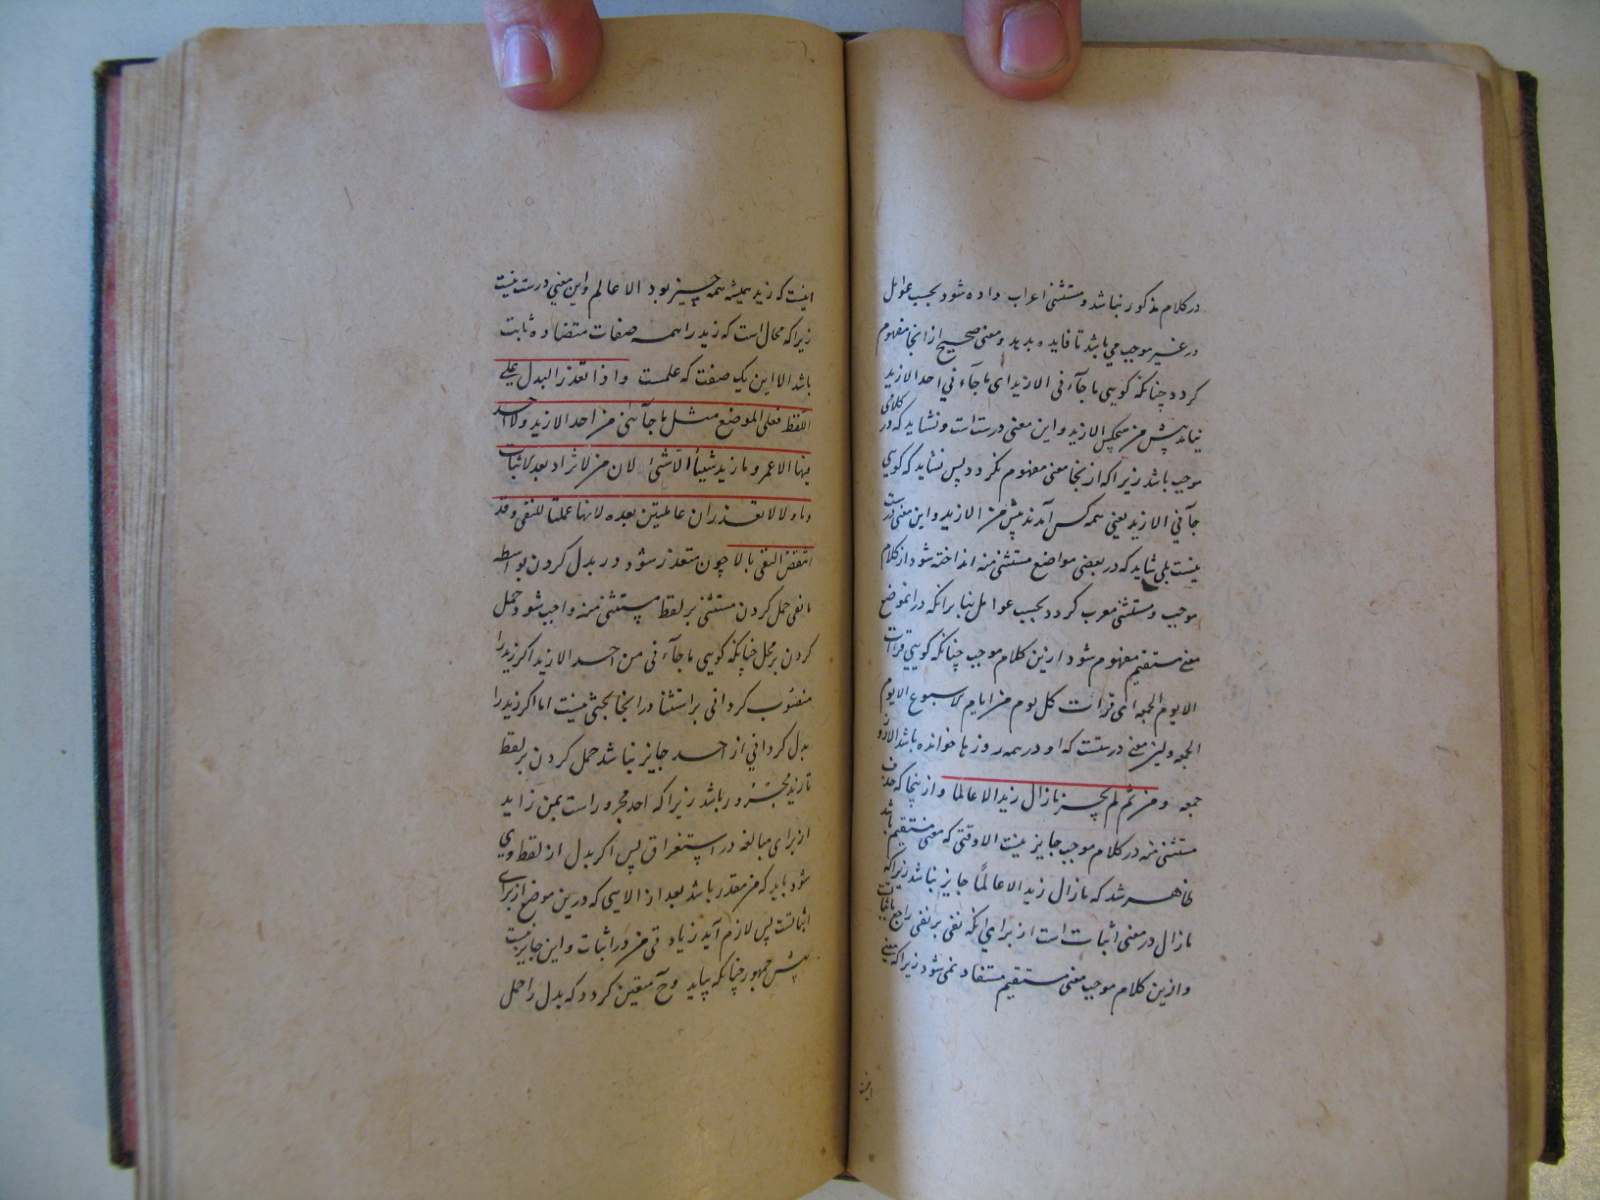 در کلام مذکور نباشد و مستثنی اعراب داده شود بحسب عوامل
در غیر موجب می باشد تا فایده بدید و معنی صحیح از انجا مفهوم
کردد چنانکه کویی ما جآء نی الا زید ای ما جآء نی احد الا زید
نیامد پیش من هیچکس الا زید و این معنی درست است و نشاید که در کلامی
موجب باشد زیرا که از نجا معنی مفهوم نکردد پس نشاید که کویی
جآنی الا زید یعنی همه کس آمدند پیش من الا زید و این معنی درست
نیست بلی شاید که در بعضی مواضع مستثنی منه انداخته شود از کلام
موجب و مستثنی معرب کردد بحسب عوامل بنا برانکه در انموضع
معنی مستقیم مفهوم شود ازین کلام موجب چنانکه کویی قرات
الا یوم الجمعه ای قرات کل یوم من ایام الاسبوع الا یوم
الجمعه و این معنی درستست که او در همه روزها خوانده باشد الا روز
جمعه و من ثم لم یجز ما زال زید الا عالما و از ینجا که حذف
مستثنی منه در کلام موجب جایز نیست الا وقتی که معنی مستقیم باشد
ظاهر شد که ما زال زید الا عالمًا جایز نباشد زیرا که
ما زال در معنی اثبات است از برای انکه نفی بر نفی راجع باثبات
و ازین کلام موجب معنی مستقیم مستفاد نمی شود زیرا که معنی
اینست که زید همیشه همه چیز بود الا عالم و این معنی درست نیست
زیرا که محال است که زید را همه صفات متضاده ثابت
باشد الا این یک صفت که علمست و اذا تعذر البدل علی
اللفظ فعلی الموضع مثل ما جآئنی من احد الا زید و لا احد
فیها الا عمر و ما زید شیئا الا شئ لان من لا تزاد بعد الاثبات
و ما و لا لا تقدران عاملتین بعده لانها عملتا للنفی و قد
انتقض النفی بالا چون متعذر شود در بدل کردن بواسطه
مانعی حمل کردن مستثنی بر لفظ مستثنی منه واجب شود حمل
کردن بر محل چنانکه کویی ما جآء نی من احد الا زید اکر زید را
منصوب کردانی بر استثنا در اینجا بحثی نیست اما اکر زید را
بدل کردانی از احد جایز نباشد حمل کردن بر لفظ
تا زید مجرور باشد زیرا که احد مجرور است بمن زاید
از برای مبالغه در استغراق پس اکر بدل از لفظ وی
شود باید که من مقدر باشد بعد از الا سی که درین موضع از برای
اثباتست پس لازم آید زیادتی من در اثبات و این جایز نیست
پیش جمهور چنانکه بیاید وح متعین کردد که بدل را حمل